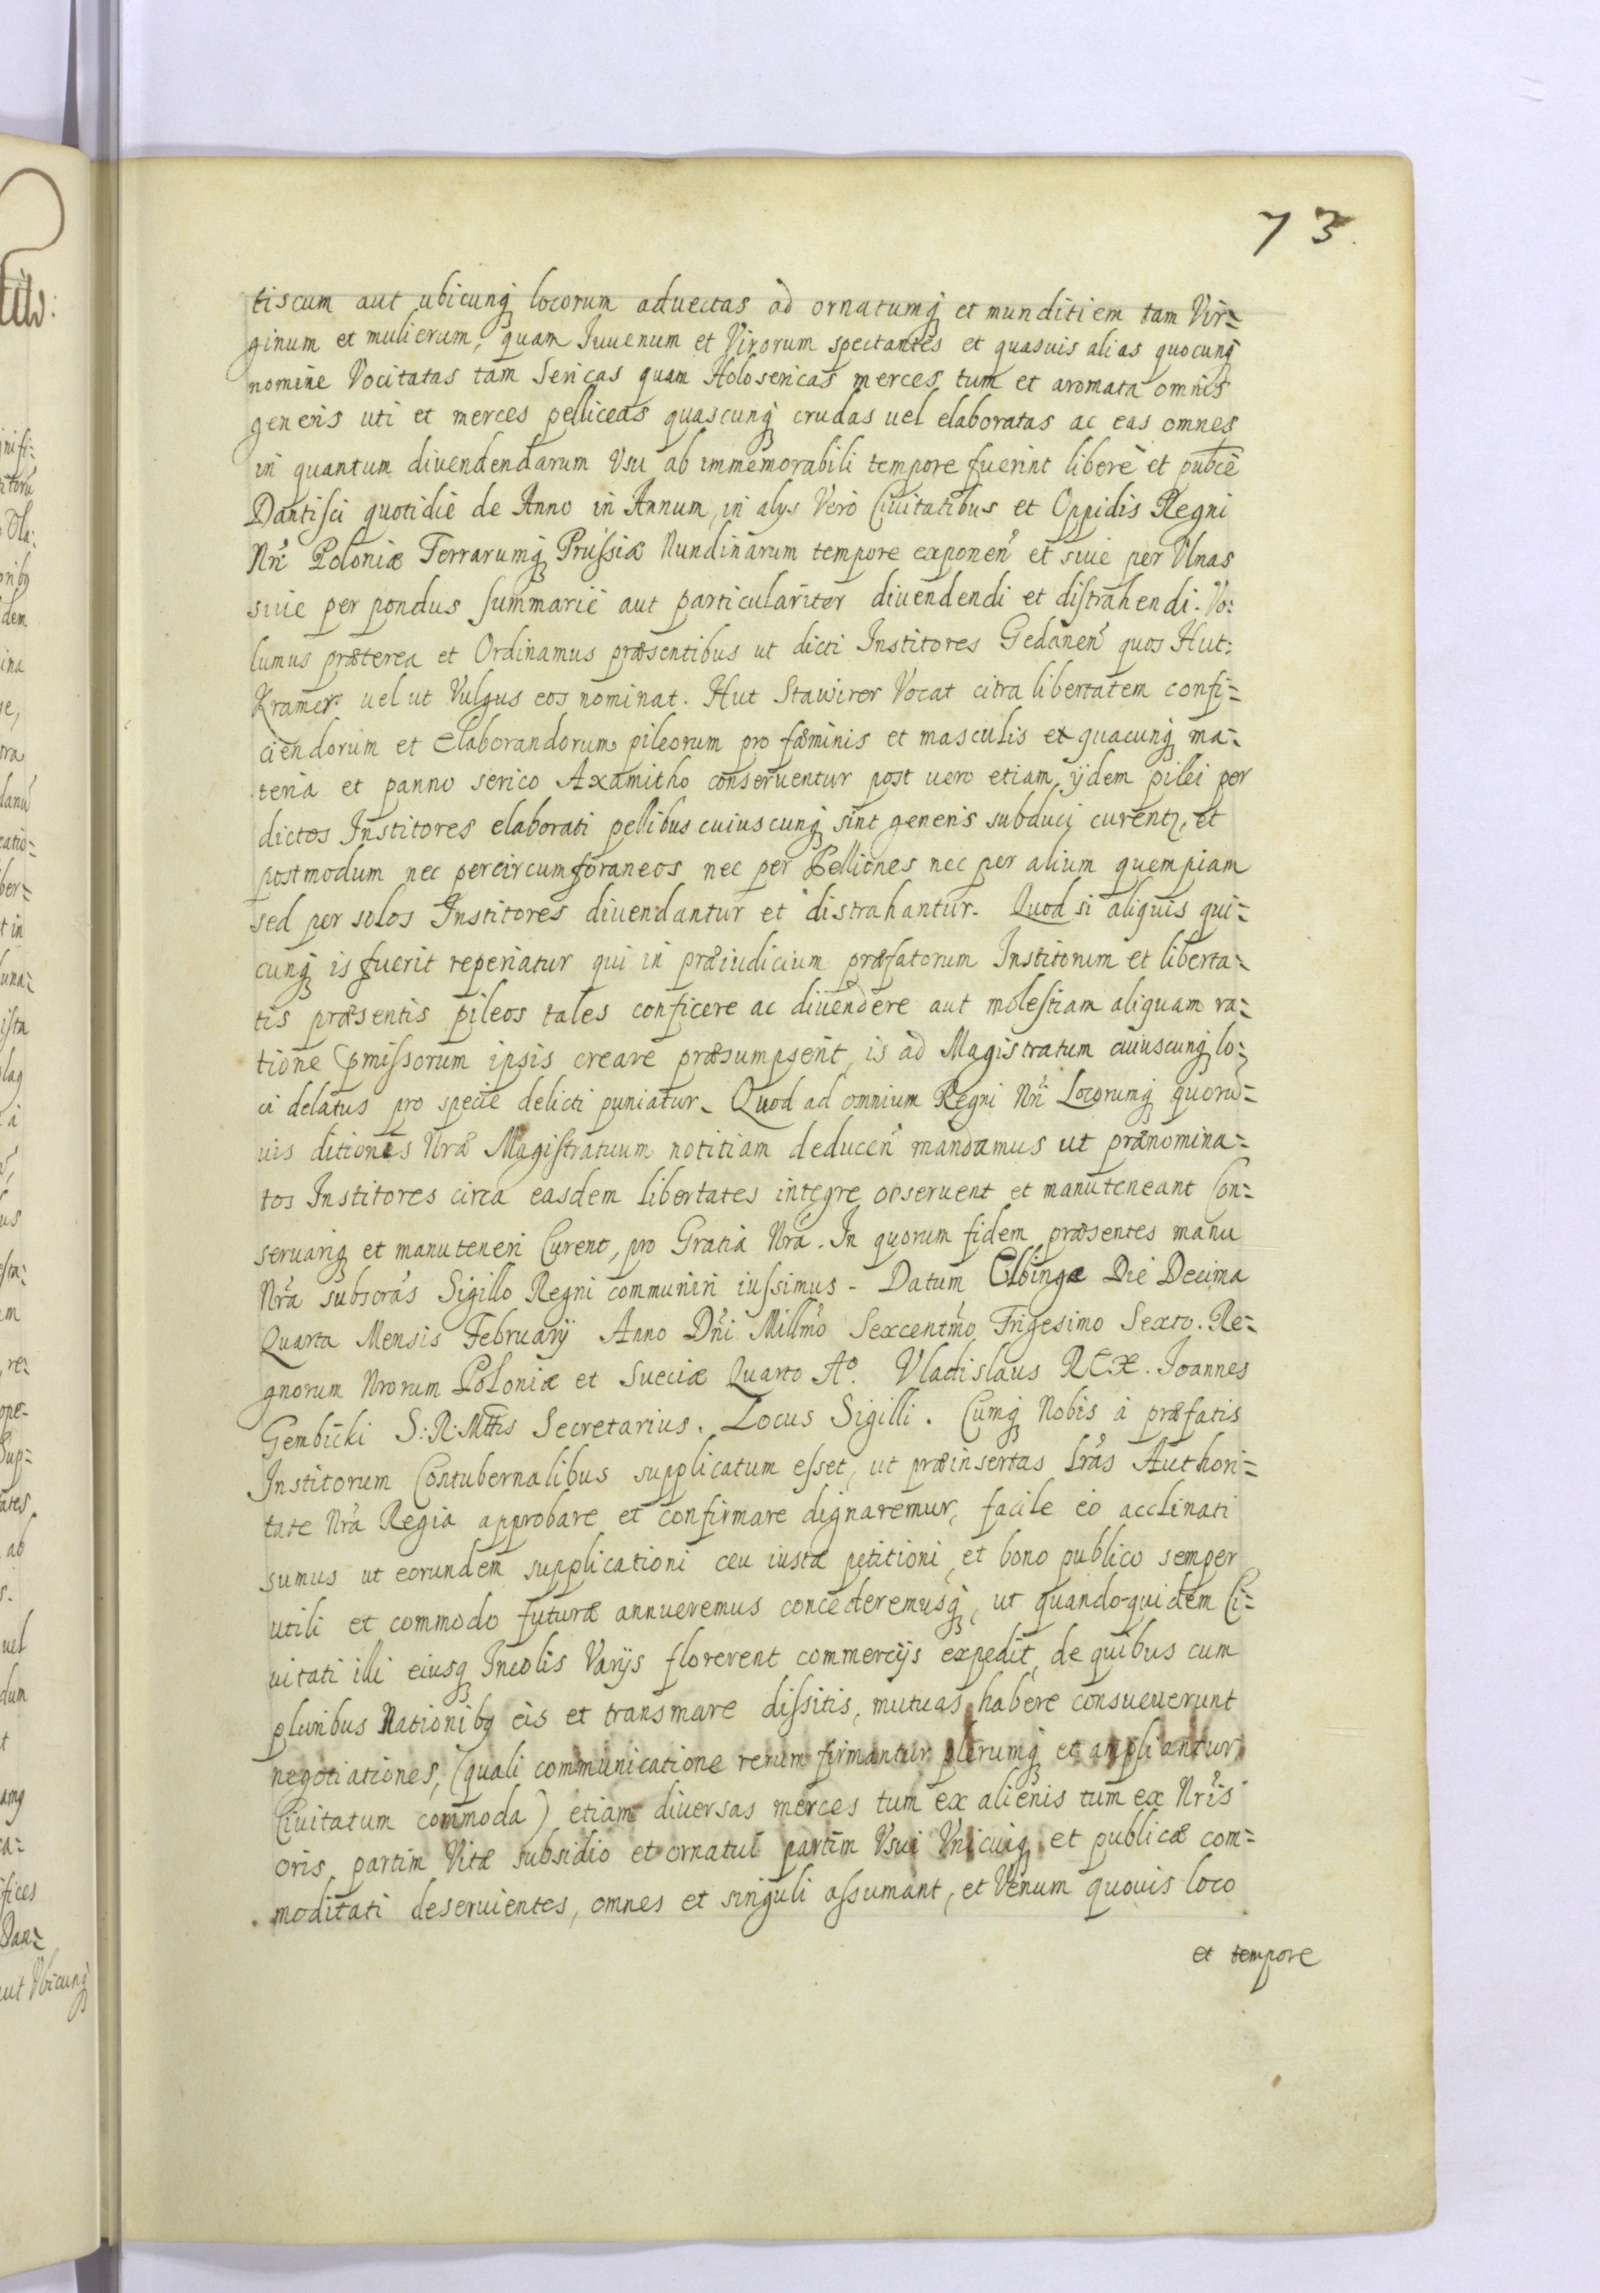 73.
tiscum aut ubicunq locorum aduectas ad ornatumq et munditiem tam Vir=
ginum et mulierum, quam Iuuenum et Virorum spectantes et quasuis alias quocunq
nomine Vocitatas tam Sericas quam Holosericas merces tum et aromata omnis
generis uti et merces pelliceas quascunq crudas uel elaboratas ac eas omnes
in quantum diuendendarum Vsu ab immemorabili tempore fuerint liberè et pubcè
Dantisci quotidie de Anno in Annum, in alys Verò Ciuitatibus et Oppidis Regni
Nri Poloniæ Terrarumq Prussiæ Nundinarum tempore exponen et siue per Vlnas
siue per pondus summariè aut particulariter diuendendi et distrahendi. Vo:
lumus præterea et Ordinamus præsentibus ut dicti Institores Gedanen quos Hut:
Kramer uel ut Vulgus eos nominat. Hut Stawirer Vocat citra libertatem confi=
ciendorum et elaborandorum pileorum pro fæminis et masculis ex quacunq ma=
teria et panno serico Axamitho conseruentur post uero etiam ijdem pilei per
dictos Institores elaborati pellibus cuiuscunq sint generis subduci curent, et
postmodum nec percircumforaneos nec per Pelliones nec per alium quempiam
sed per solos Institores diuendantur et distrahantur. Quod si aliquis qui=
cunq is fuerit reperiatur qui in præiudicium præfatorum Institorum et liberta=
tis præsentis pileos tales conficere ac diuendere aut molestiam aliquam ra=
tione pmissorum ipsis creare præsumpserit, is ad Magistratum cuiuscunq lo=
ci delatus pro specie delicti puniatur. Quod ad omnium Regni Nri Locorumq quoru=
uis ditionis Nræ Magistratuum notitiam deducen mandamus ut prænomina=
tos Institores circa easdem libertates integre obseruent et manuteneant Con=
seruariq et manuteneri Curent, pro Gratia Nra. In quorum fidem præsentes manu
Nra subscras Sigillo Regni communiri iussimus - Datum Elbingæ Die Decima
Quarta Mensis Februarij Anno Dni Millmo Sexcentmo Trigesimo Sexto. Re=
gnorum Nrorum Poloniæ et Sueciæ Quarto Ao. Vladislaus Rex. Ioannes
Gembicki S: R: Mttis Secretarius. Locus Sigilli. Cumq Nobis à præfatis
Institorum Contubernalibus supplicatum esset, ut præinsertas lras Authori=
tate Nra Regia approbare et confirmare dignaremur, facile eò acclinati
sumus ut eorundem supplicationi ceu iustæ petitioni, et bono publico semper
utili et commodo futuræ annueremus concederemusq, ut quando-quidem Ci=
uitati illi eiusq Incolis Varijs florerent commercijs expedit, de quibus cum
pluribus Nationibq cis et transmare dissitis, mutuas habere consueuerunt
negotiationes, (quali communicatione rerum firmantur plerumq et ampliantur
Ciuitatum commoda) etiam diuersas merces tum ex alienis tum ex Nris
oris, partim Vitæ subsidio et ornatui partim Vsui Vnicuiq et publicæ com=
moditati deseruientes, omnes et singuli assumant, et Venum quouis loco
et tempore